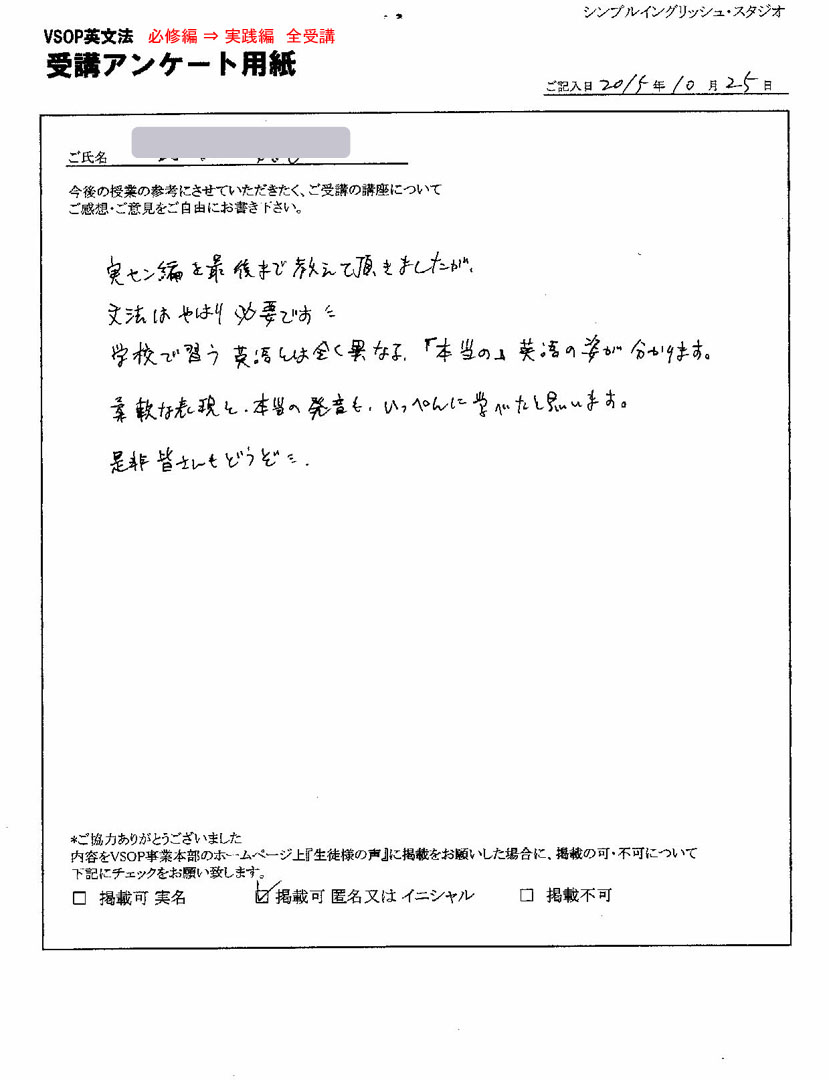 シンプルイングリッシュ・スタジオ
VSOP英文法 必修編 ⇒ 実践編 全受講
受講アンケート用紙
ご記入日 2015年10月25日
ご氏名
今後の授業の参考にさせていただきたく、ご受講の講座について
ご感想・ご意見をご自由にお書き下さい。
実セン編を最後まで教えて頂きましたが、
文法はやはり必要です
学校で習う英語とは全く異なる、『本当の』英語の姿が分かります。
柔軟な表現と、本当の発音も、いっぺんに学べたと思います。
是非皆さんもどうぞ
*ご協力ありがとうございました
内容をVSOP事業本部のホームページ上『生徒様の声』に掲載をお願いした場合に、掲載の可・不可について
下記にチェックをお願い致します。
□ 掲載可 実名 ☑ 掲載可 匿名又は イニシャル □ 掲載不可